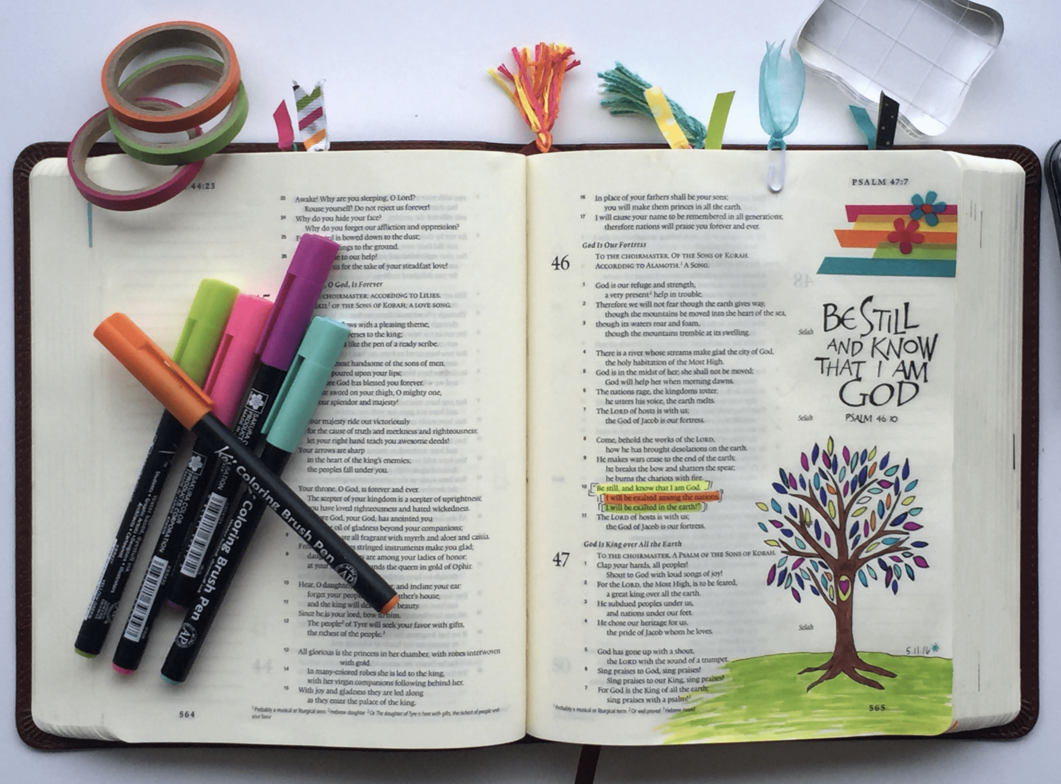 44:23
23 Awake! Why are you sleeping, O Lord?
Rouse yourself! Do not reject us forever!
24 Why do you hide your face?
Why do you forget our affliction and oppression?
25 is bowed down to the dust;
ings to the ground.
26 e to our help!
us for the sake of your steadfast love!
, O God, Is Forever
CHOIRMASTER: ACCORDING TO LILIES.
OF THE SONS OF KORAH; A LOVE SONG.
ows with a pleasing theme,
erses to the king;
like the pen of a ready scribe.
most handsome of the sons of men,
poured upon your lips;
ore God has blessed you forever.
sword on your thigh, O mighty one,
our splendor and majesty!
our majesty ride out victoriously
for the cause of truth and meekness and righteousness;
let your right hand teach you awesome deeds!
Your arrows are sharp
in the heart of the king's enemies;
the peoples fall under you.
Your throne, O God, is forever and ever.
The scepter of your kingdom is a scepter of uprightness;
you have loved righteousness and hated wickedness.
God, your God, has anointed you
oil of gladness beyond your companions;
are all fragrant with myrrh and aloes and cassia.
stringed instruments make you glad;
are among your ladies of honor;
at your ands the queen in gold of Ophir.
10 Hear, O daugh and incline your ear:
forget your peop ther's house,
11 and the king will de beauty.
Since he is your lord, bow to him.
12 The people of Tyre will seek your favor with gifts,
the richest of the people.
13 All glorious is the princess in her chamber, with robes interwoven
with gold.
14 In many-colored robes she is led to the king,
with her virgin companions following behind her.
15 With joy and gladness they are led along
as they enter the palace of the king.
564
Coloring Brush Pen AP
Coloring Brush Pen AP
PSALM 47:7
16 In place of your fathers shall be your sons;
you will make them princes in all the earth.
17 I will cause your name to be remembered in all generations;
therefore nations will praise you forever and ever.
God Is Our Fortress
46 TO THE CHOIRMASTER. OF THE SONS OF KORAH.
ACCORDING TO ALAMOTH.¹ A SONG.
1 God is our refuge and strength,
a very present² help in trouble.
2 Therefore we will not fear though the earth gives way,
though the mountains be moved into the heart of the sea,
3 though its waters roar and foam,
though the mountains tremble at its swelling. Selah
4 There is a river whose streams make glad the city of God,
the holy habitation of the Most High.
5 God is in the midst of her; she shall not be moved;
God will help her when morning dawns.
6 The nations rage, the kingdoms totter;
he utters his voice, the earth melts.
7 The LORD of hosts is with us;
the God of Jacob is our fortress. Selah
8 Come, behold the works of the LORD,
how he has brought desolations on the earth.
9 He makes wars cease to the end of the earth;
he breaks the bow and shatters the spear;
he burns the chariots with fire.
10 "Be still, and know that I am God.
I will be exalted among the nations,
I will be exalted in the earth!"
11 The LORD of hosts is with us;
the God of Jacob is our fortress.
God Is King over All the Earth
47 TO THE CHOIRMASTER. A PSALM OF THE SONS OF KORAH.
1 Clap your hands, all peoples!
Shout to God with loud songs of joy!
2 For the LORD, the Most High, is to be feared,
a great king over all the earth.
3 He subdued peoples under us,
and nations under our feet.
4 He chose our heritage for us,
the pride of Jacob whom he loves. Selah
5 God has gone up with a shout,
the LORD with the sound of a trumpet.
6 Sing praises to God, sing praises!
Sing praises to our King, sing praises!
7 For God is the King of all the earth;
sing praises with a psalm!
565
BE STILL
AND KNOW
THAT I AM
GOD
PSALM 46:10
5.11.16